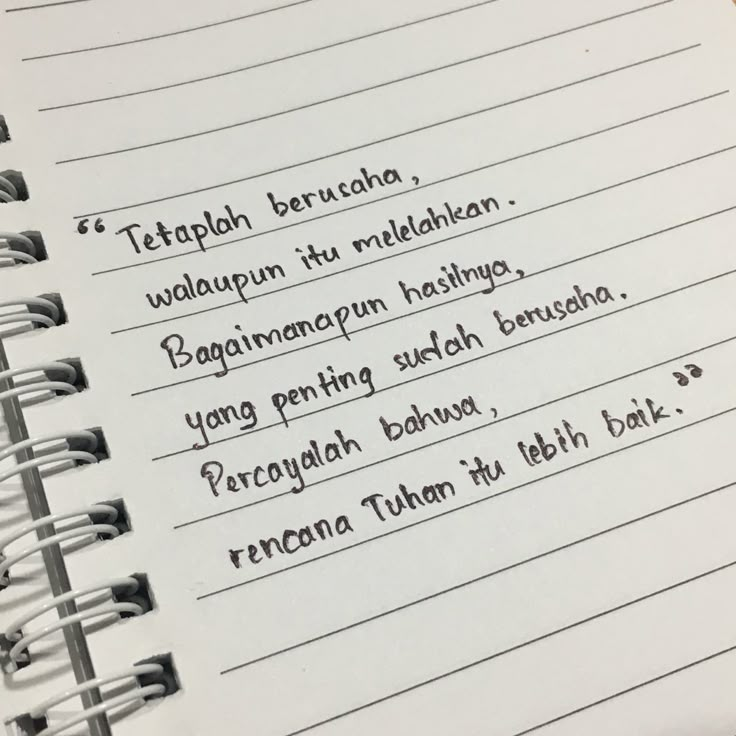 “Tetaplah berusaha,
walaupun itu melelahkan.
Bagaimanapun hasilnya,
yang penting sudah berusaha.
Percayalah bahwa,
rencana Tuhan itu lebih baik.”